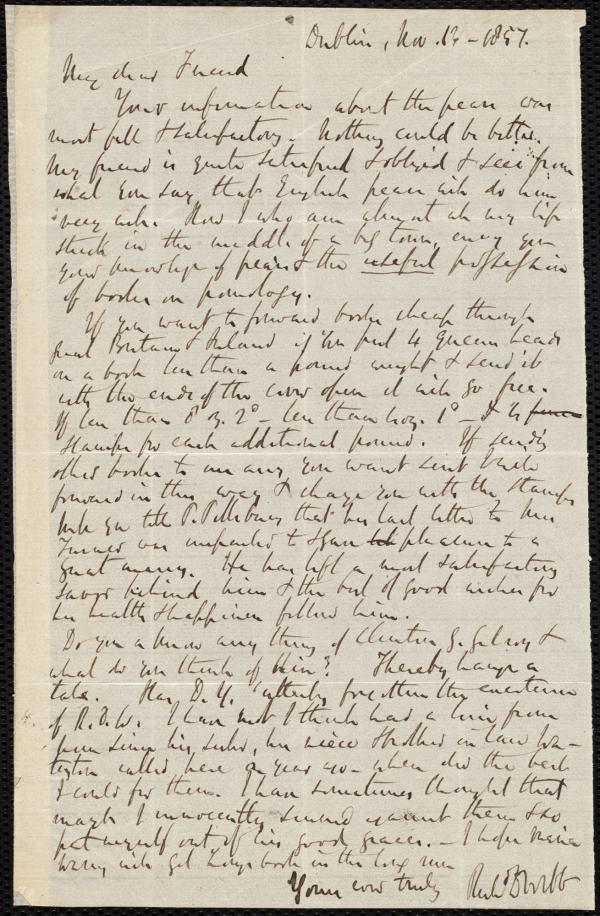 Dublin, Nov. 13 - 1857.
My dear Friend
Your information about the pears was
most full & satisfactory. Nothing could be better.
My friend is quite satisfied & obliged & sees from
what you say that English pears will do him
very well. How I who am almost all my life
stuck in the middle of a big town, envy you
your knowledge of pears & the useful possession
of books on pomology.
If you want to forward books cheap through
Great Britain & Ireland if you put 4 Queens heads
on a book less than a pound weight & send it
with the ends of the cover open it will go free.
If less than 8 oz. 2d - less than 4 oz. 1d - & 4
stamps for each additional pound. If sending
other books to me any you want sent I will
forward in this way & charge you with the stamps
will you tell P. Pillsbury that his last letter to
was imparted to & gave pleasure to a
great many. He has left a most satisfactory
savor behind him & the best of good wishes for
his health & happiness follow him.
Do you know any thing of Clinton G. Gilroy &
what do you think of him? Thereby hangs a
tale. Has D. Y. utterly forgotten the existence
of R. D. W. I have not I think had a line from
him since his, niece & brother in law
called here a year ago - when did the best
I could for them. I have sometimes thought that
maybe I innocently sinned against them & so
put myself out of his good graces. - I hope Maria
will get books in the long run
Yours very truly Richd D Webb